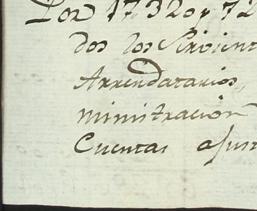 Por 17320 y 72
dos los Sirvient
Arrendatarios,
ministracion
Cuentas ajust